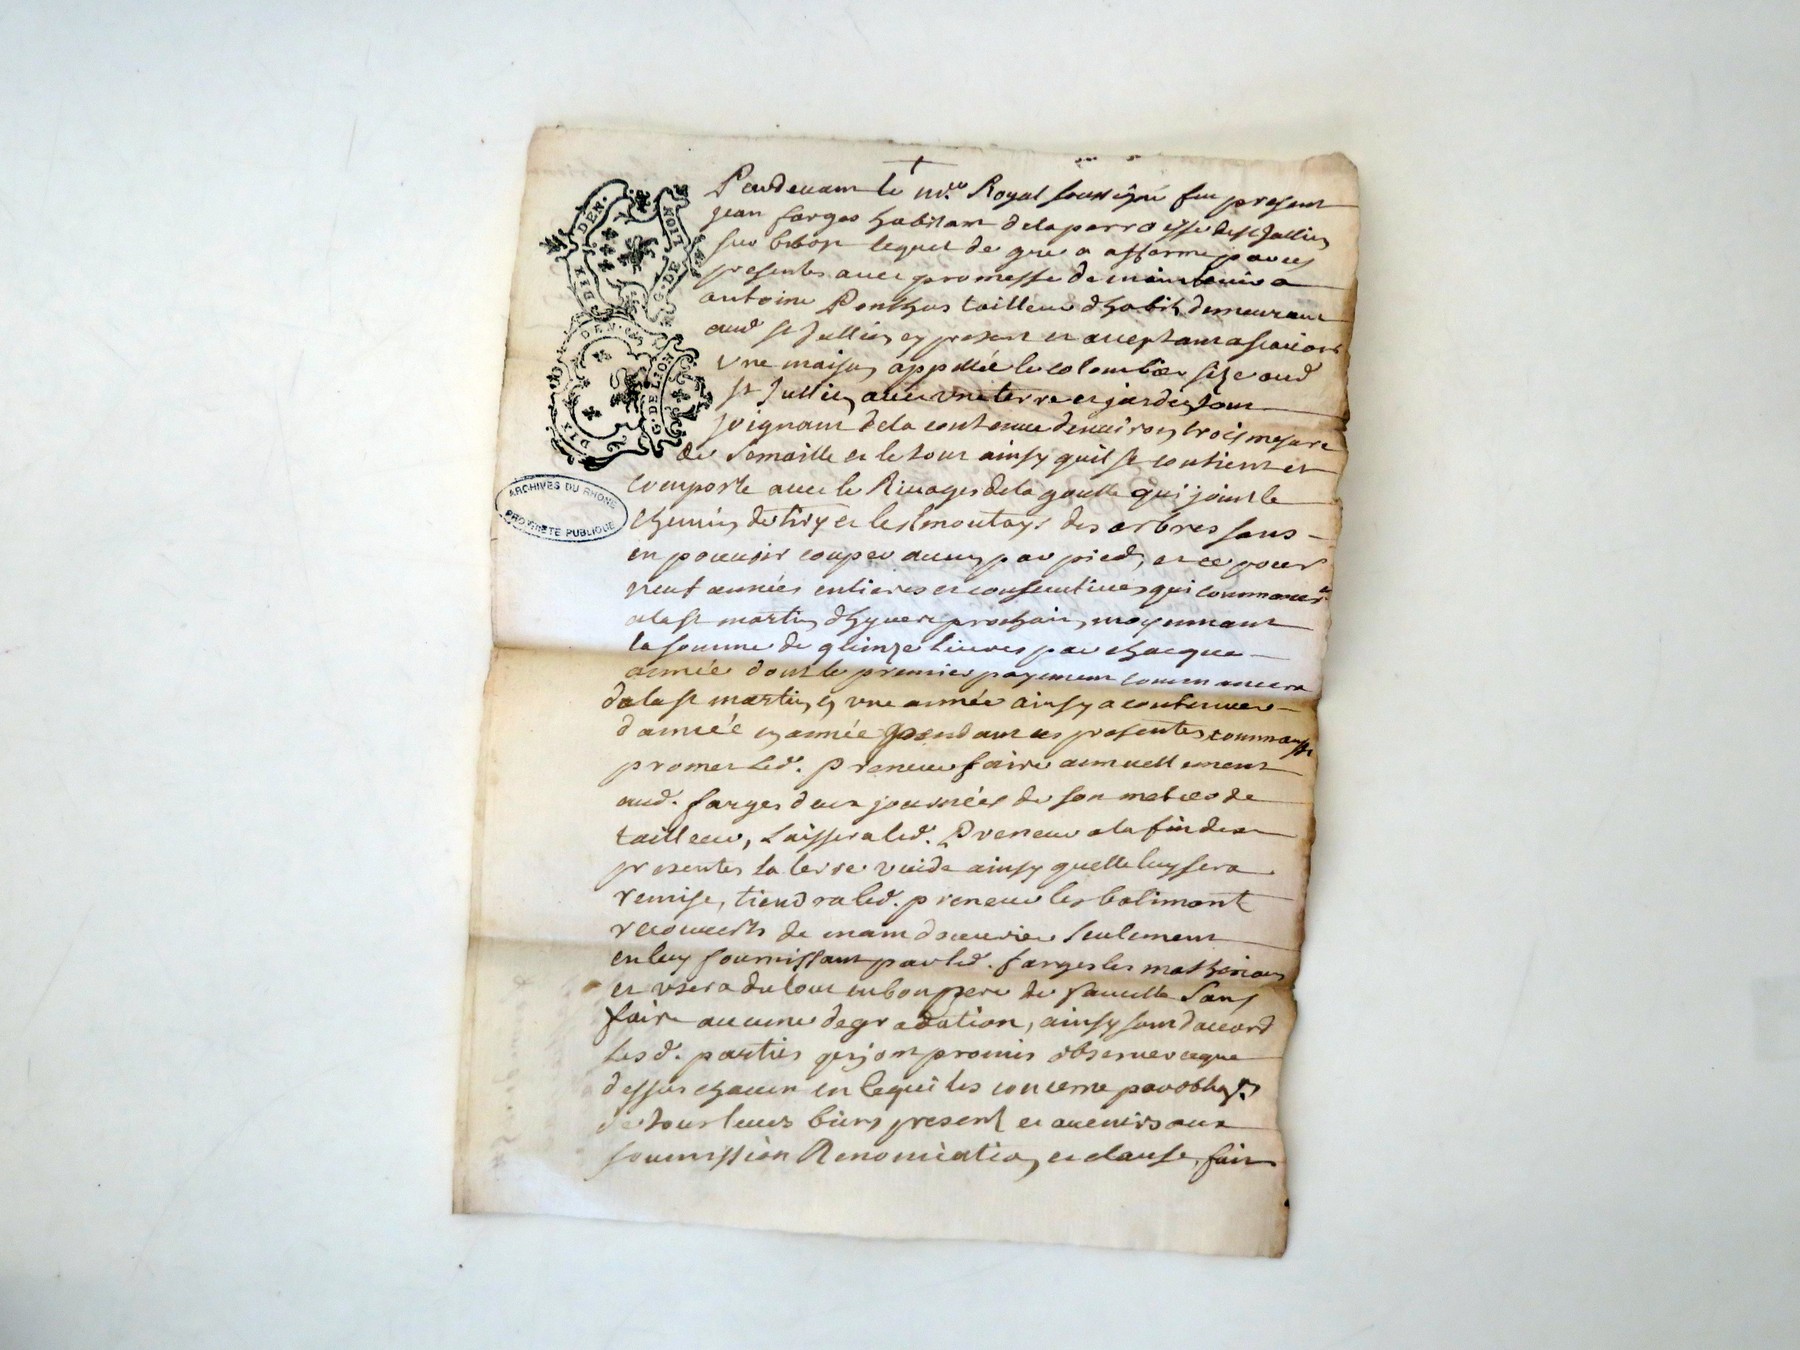 DIX DEN.
G. DE LION
DIX DEN.
G. DE LION
ARCHIVES DU RHONE
PROPRIETE PUBLIQUE
Pardevant le no.re Royal soussigné fut present
jean farges habitant de la parroisse de st Jullien
sur bibost lequel de gré a affermé par ces
presentes avec promesse de maintenir a
antoine Ponthus tailleur d'habits demeurant
aud st Jullien, present et acceptant a scavoir
une maison appellée le colombier size aud
st Jullien avec une terre et jardin, tout
joignant de la contenue d'environ trois mesure
de semaille et le tout ainsy quil se contient et
comporte avec le Rivages de la goutte qui joint le
chemin de et les des arbres sans
en pouvoir couper aucun par pied, et ce pour
neuf années entieres et consecutives qui commancer
a la st martin d'hyvert prochain, moyennant
la somme de quinze livres par chacque
année dont le premier payement commancera
de la st martin en une année ainsy a continuer
d'année en année pendant ces presentes,
promet led. preneur faire annuellement
aud. farges deux journées de son metier de
tailleur, Laissera led. Preneur a la fin des
presentes la terre vuide ainsy quelle luy sera
remise, tiendra led. preneur les batiment
recouverts de main d'oeuvre seulement
en luy fournissant par led. farges les matheriaux
et usera du tout en bon pere de famille sans
faire aucune degradation, ainsy sont d'accord
lesd. parties qui ont promis observer ce que
dessus chacun en ce qui les concerne par oblig.on
de tous leurs biens present et avenirs aux
soumission Renonciation, et clause, fait